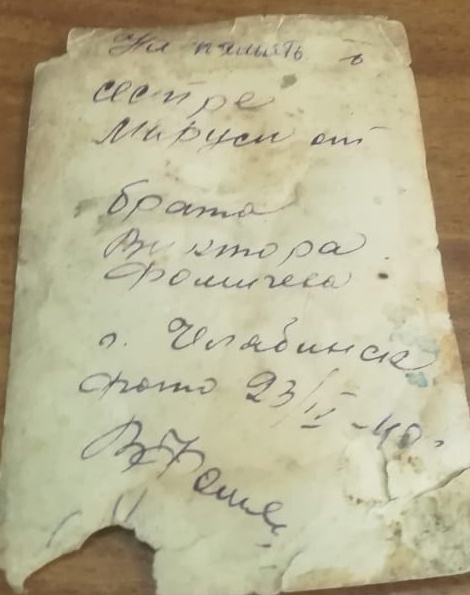 На память
сестре
Маруси от
брата
Виктора
Фомичева
г. Челябинск
фото 23/IV-40г